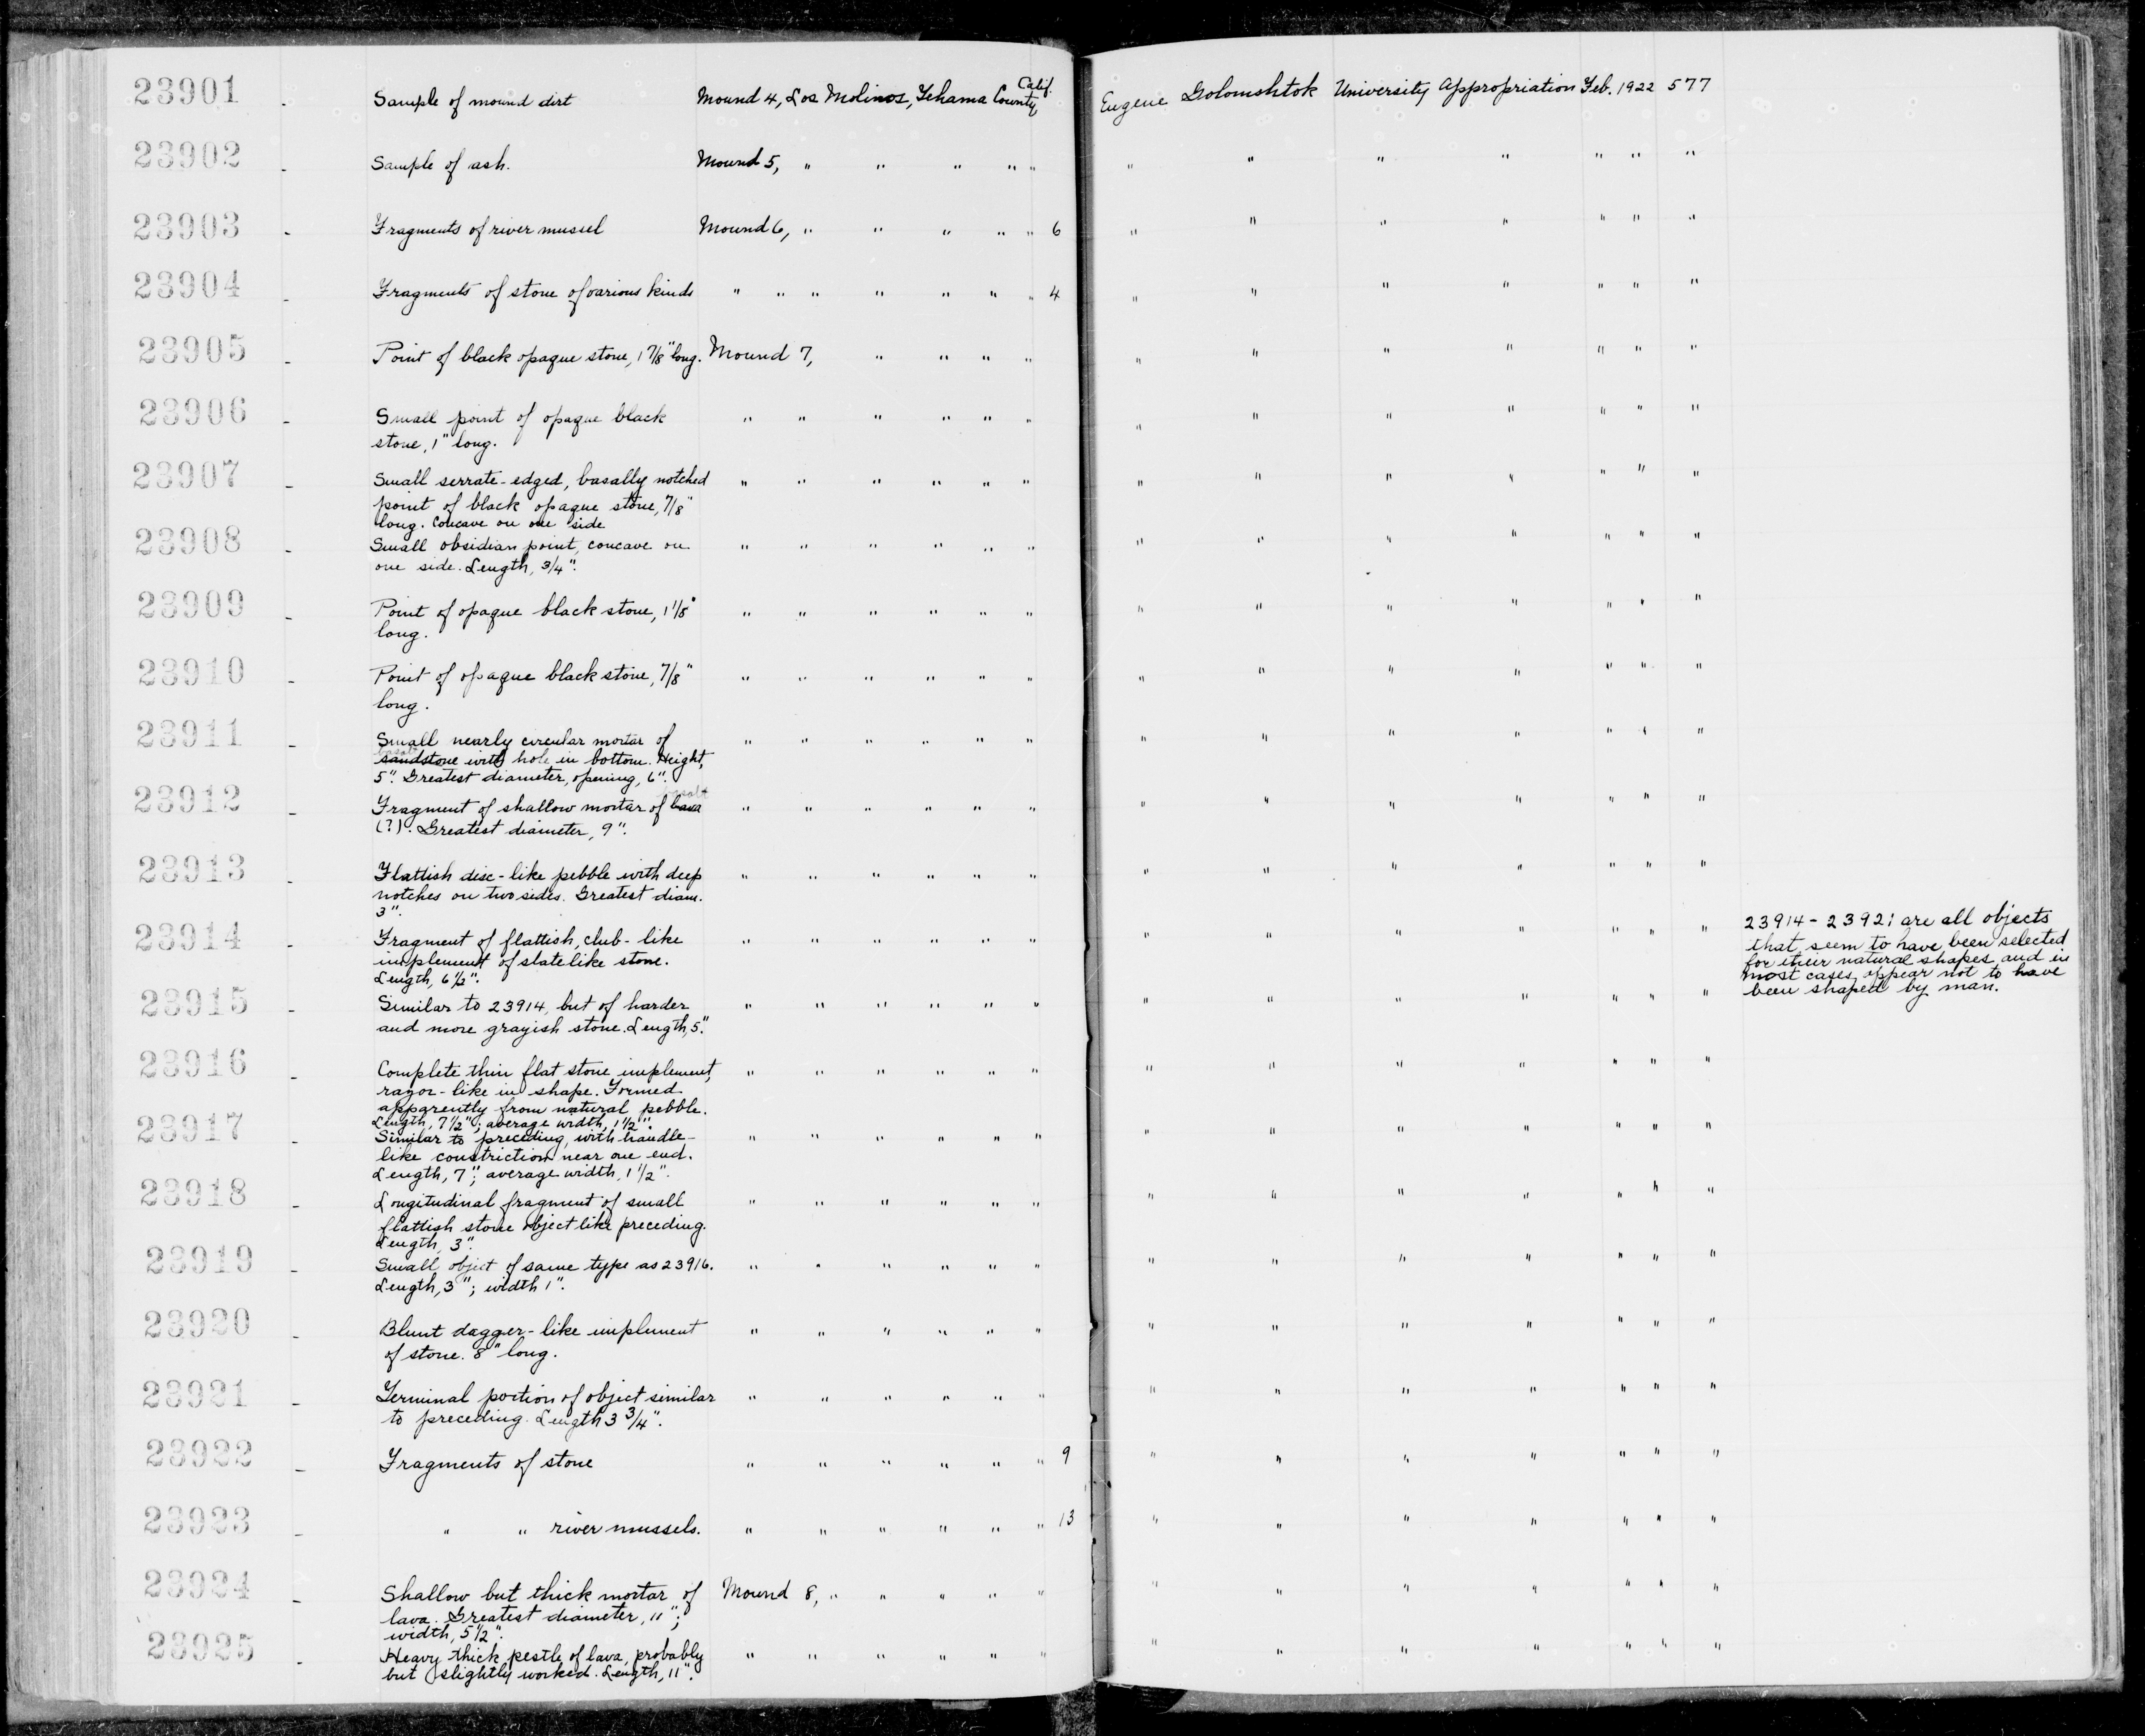 23901 - Sample of mound dirt Mound 4, Los Molinos, Tehama County Calif. Eugene Golomshtok University Appropriation Feb. 1922 577
23902 - Sample of ash. Mound 5, " " " " " " " " " " " "
23903 - Fragments of river mussel Mound 6, " " " " " 6 " " " " " " "
23904 - Fragments of stone of various kinds " " " " " " " 4 " " " " " " "
23905 - Point of black opaque stone, 1 7/8" long. Mound 7, " " " " " " " " " " "
23906 - Small point of opaque black " " " " " " " " " " " " "
stone, 1" long.
23907 - Small serrate-edged, basally notched " " " " " " " " " " " " "
point of black opaque stone, 7/8"
long. Concave on one side
23908 - Small obsidian point, concave on " " " " " " " " " " " " "
one side. Length, 3/4".
23909 - Point of opaque black stone, 1 1/8" " " " " " " " " " " " " "
long.
23910 - Point of opaque black stone, 7/8" " " " " " " " " " " " " "
long.
23911 - Small nearly circular mortar of " " " " " " " " " " " " "
basalt
sandstone with hole in bottom. Height,
5". Greatest diameter, opening, 6".
basalt
23912 - Fragment of shallow mortar of lava " " " " " " " " " " " " "
(?). Greatest diameter, 9".
23913 - Flattish disc-like pebble with deep " " " " " " " " " " " " "
notches on two sides. Greatest diam.
3".
23914 - Fragment of flattish, club-like " " " " " " " " " " " " "
implement of slatelike stone.
Length, 6 1/2".
23914 - 23921 are all objects
that seem to have been selected
for their natural shapes, and in
most cases, appear not to have
been shaped by man.
23915 - Similar to 23914, but of harder " " " " " " " " " " " " "
and more grayish stone. Length, 5".
23916 - Complete thin flat stone implement, " " " " " " " " " " " " "
razor-like in shape. Formed
apparently from natural pebble.
Length, 7 1/2"; average width, 1 1/2".
23917 - Similar to preceding, with handle- " " " " " " " " " " " " "
like constriction near one end.
Length, 7"; average width, 1 1/2".
23918 - Longitudinal fragment of small " " " " " " " " " " " " "
flattish stone object like preceding.
Length, 3".
23919 - Small object of same type as 23916. " " " " " " " " " " " " "
Length, 3"; width 1".
23920 - Blunt dagger-like implement " " " " " " " " " " " " "
of stone. 8" long.
23921 - Terminal portion of object similar " " " " " " " " " " " " "
to preceding. Length 3 3/4".
23922 - Fragments of stone " " " " " " 9 " " " " " " "
23923 - " " river mussels. " " " " " " 13 " " " " " " "
23924 - Shallow but thick mortar of Mound 8, " " " " " " " " " " " "
lava. Greatest diameter, 11";
width, 5 1/2".
23925 - Heavy thick pestle of lava, probably " " " " " " " " " " " " "
but slightly worked. Length, 11".